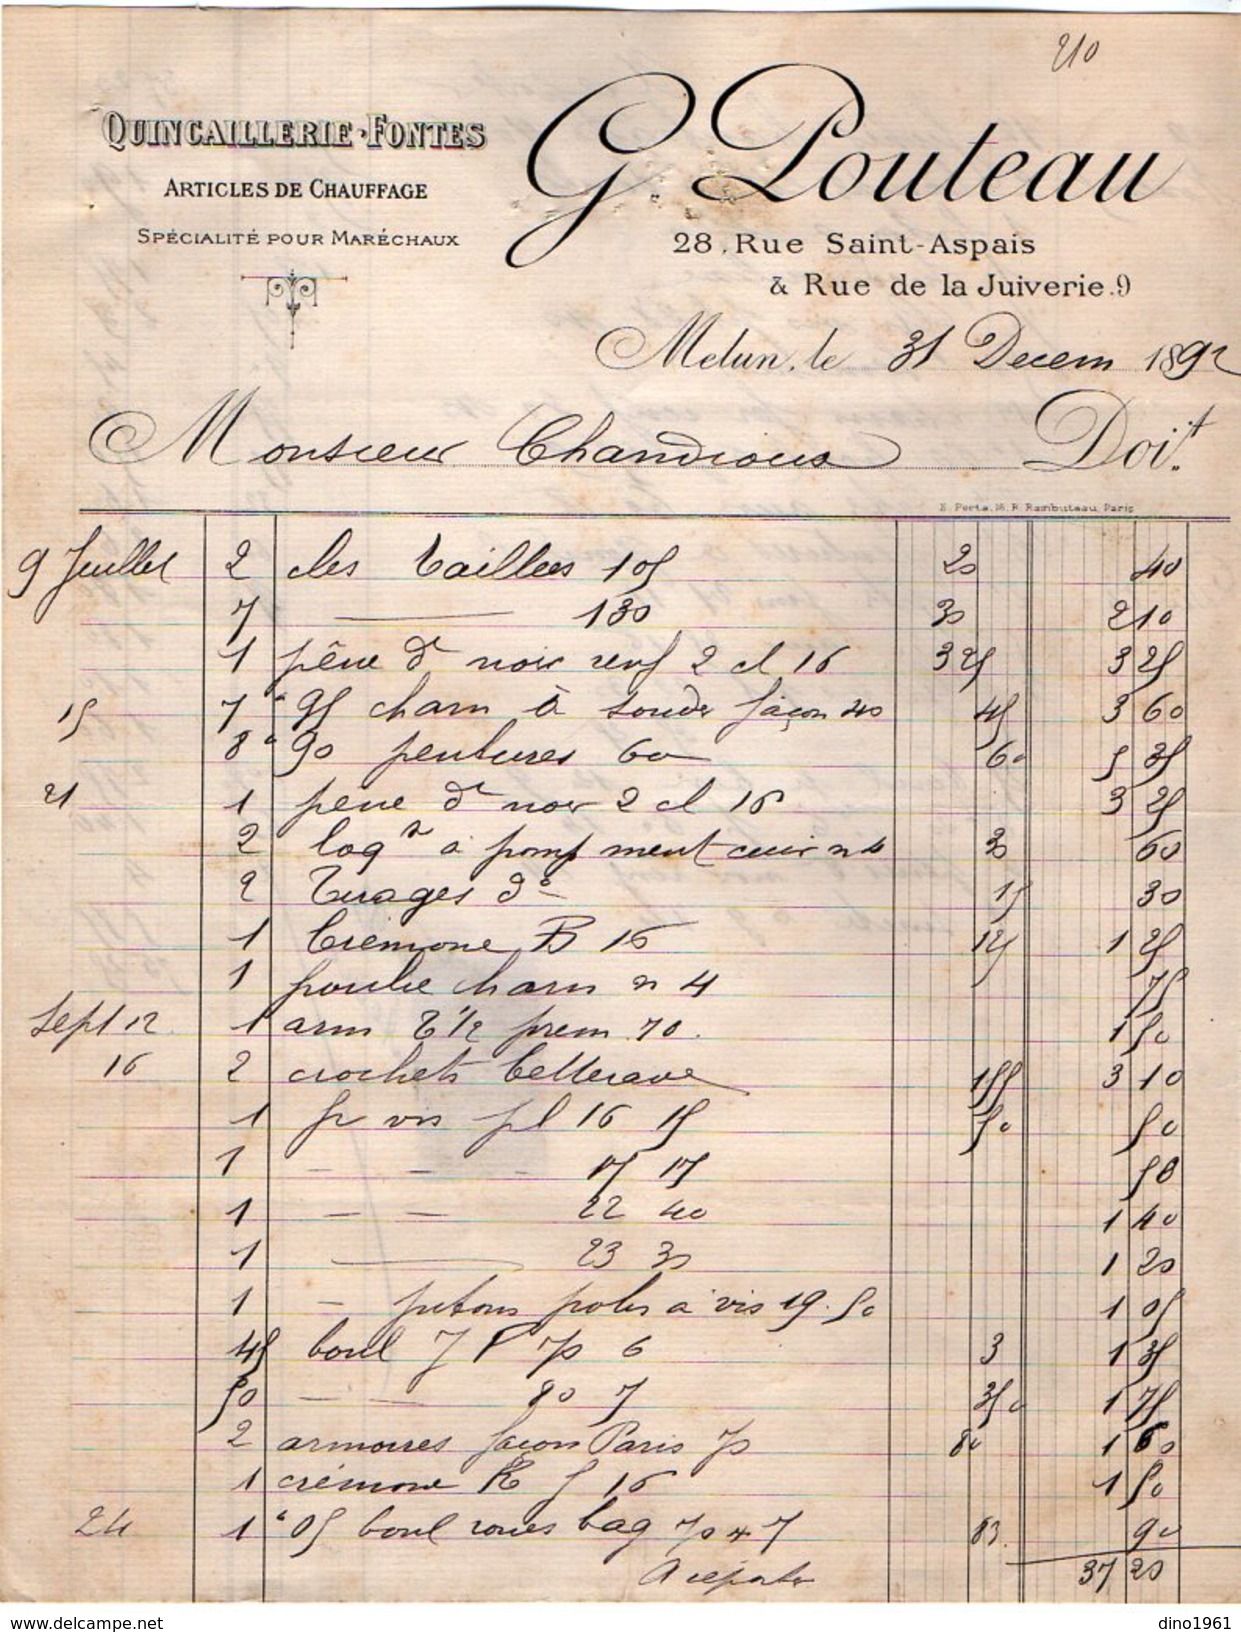 210
QUINCAILLERIE·FONTES
ARTICLES DE CHAUFFAGE
SPÉCIALITÉ POUR MARÉCHAUX
G. Pouteau
28, Rue Saint-Aspais
& Rue de la Juiverie.9
Melun, le 31 Decem 1892
Monsieur Chandioux Doit.
E. Porte, 18, R. Rambuteau, Paris
9 Juillet 2 cles taillees 105 20 40
7 — 130 30 2 10
1 pêne dt noir renf 2 cl 16 3 25 3 25
15 7 k 95 charn à souder façon 40 45 3 60
8 k 90 pentures 60 60 5 35
21 1 pene dt noir 2 cl 16 3 25
2 loqt a pomp ment cuiv n 4 30 60
2 tirages do 15 30
1 Crémone B 16 125 1 25
1 poulie charn n 4 75
Sept 12 1 arm t 1/2 prem 70. 1 50
16 2 crochets betterave 155 3 10
1 gr vis pl 16 15 50 50
1 — — — 17 50
1 — — 22 40 1 40
1 — 23 30 1 20
1 — pitons polis a vis 19. 50 1 05
45 boul J P 70 6 3 1 35
50 — — 80 7 350 1 75
2 armoires façon Paris 70 80 1 60
1 crémone 16 1 50
24 1 k 05 boul roues bag 70 x 7 83. 90
A reporter 37 20
www.delcampe.net
dino1961